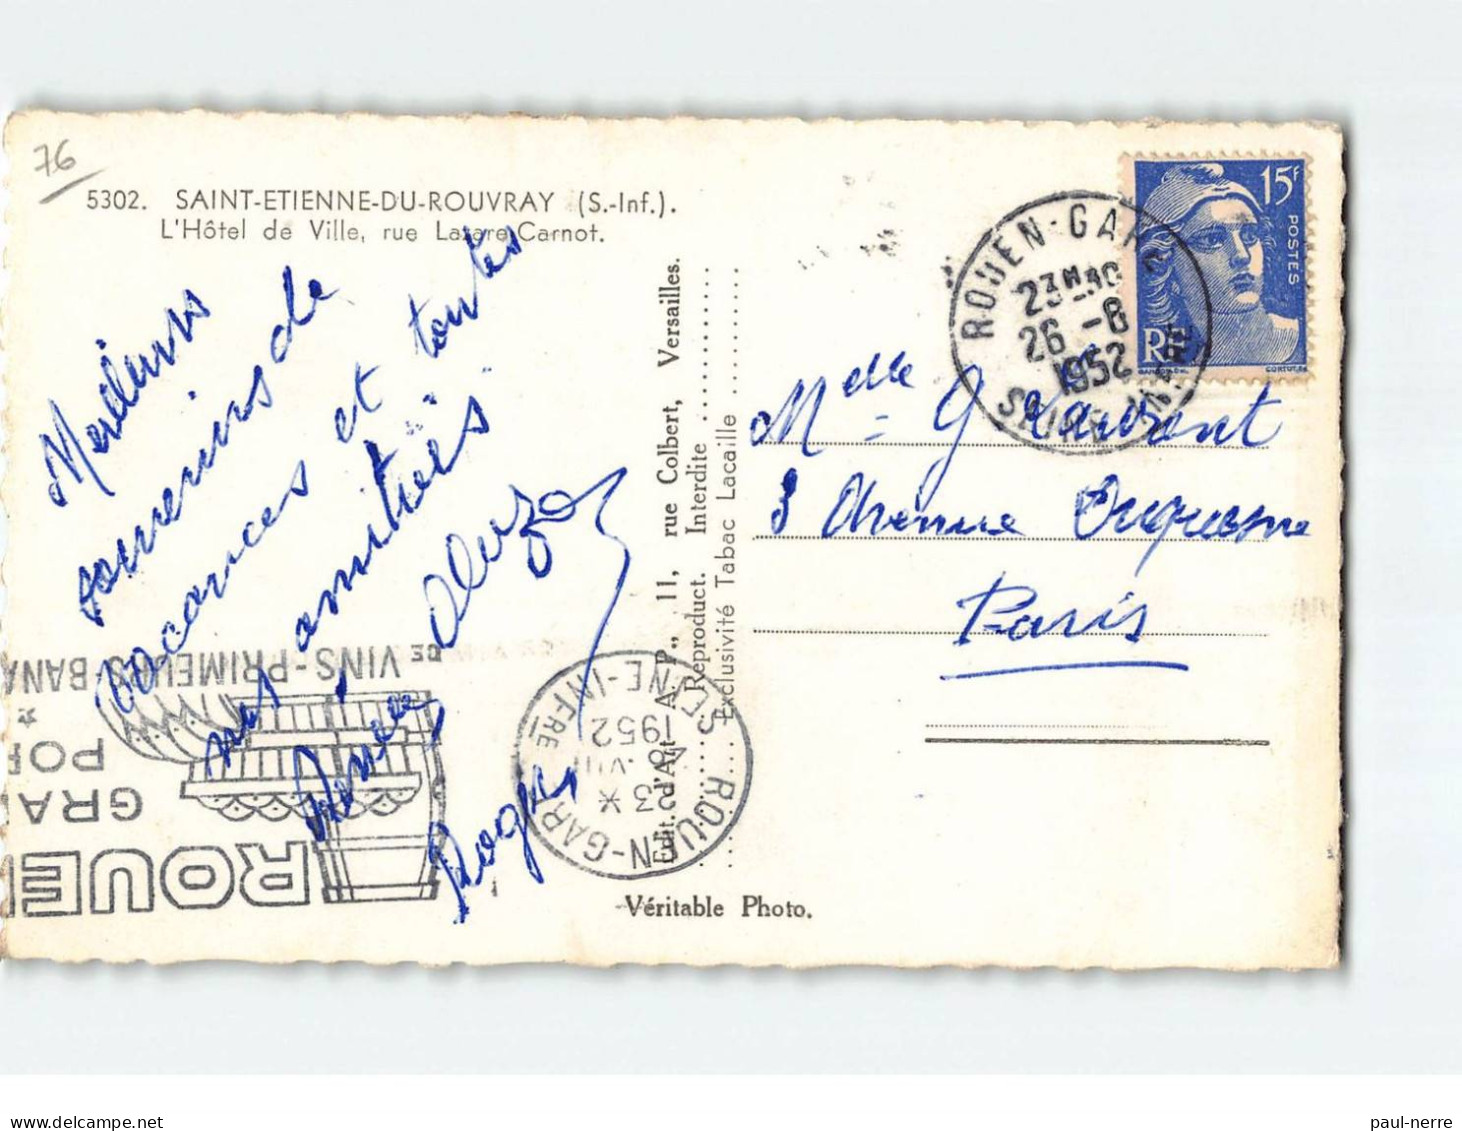 76
5302. SAINT-ETIENNE-DU-ROUVRAY (S.-Inf.).
L'Hôtel de Ville, rue Lazare Carnot.
Meilleurs
souvenirs de
vacances et toutes
nos amitiés
Roger
Edit. d'Art A. P., 11, rue Colbert, Versailles.
Reproduct. Interdite
Exclusivité Tabac Lacaille
Véritable Photo.
15F
POSTES
RF
GANDON DEL.
ROUEN-GARE
26 -8
1952
SEINE INFRE
Mdelle G Laurent
3 Avenue Duquesne
Paris
DE VINS-PRIMEURS-BANA
GRA
POR
ROUE
ROUEN-GARE
23
VIII
1952
SEINE-INFRE
paul-nerre